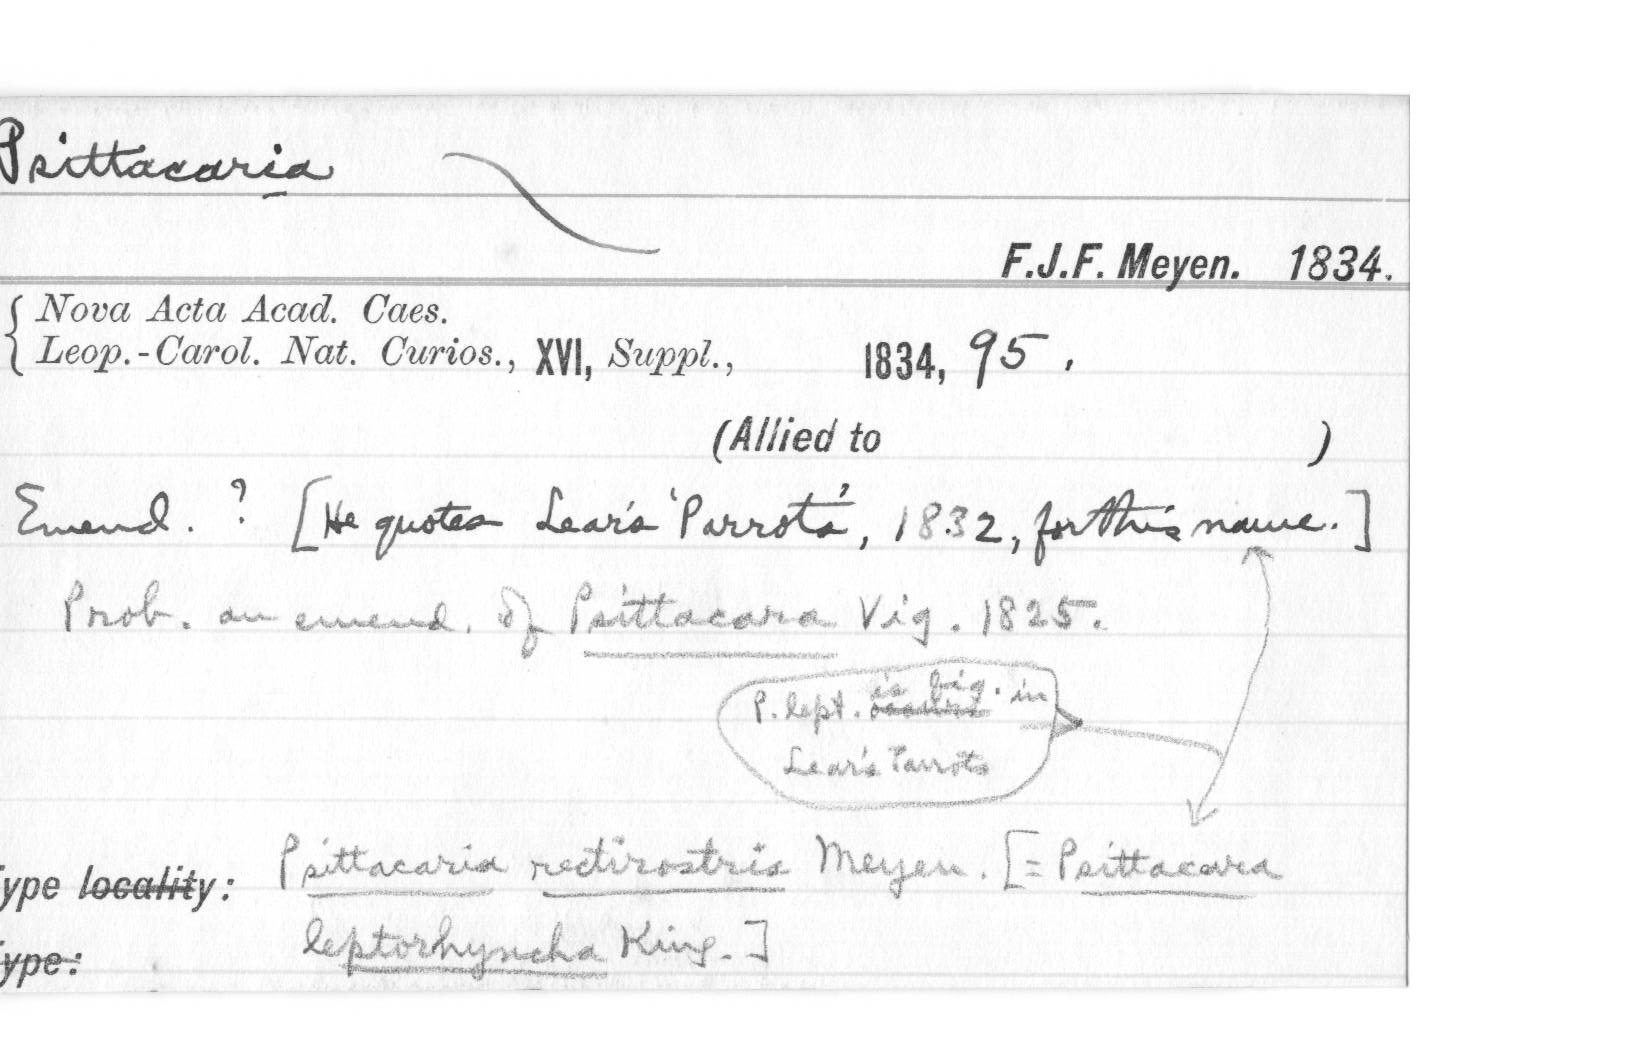 Psittacaria
F.J.F. Meyen. 1834.
Nova Acta Acad. Caes.
Leop.-Carol. Nat. Curios., XVI, Suppl., 1834, 95.
(Allied to )
Emend. ? [He quotes Lear's 'Parrots', 1832, for this name.]
Prob. an emend. of Psittacara Vig. 1825.
P. lept. is fig. in
Lear's Parrots
ype locality: Psittacaria rectirostris Meyen. [= Psittacara
ype: leptorhyncha King.]